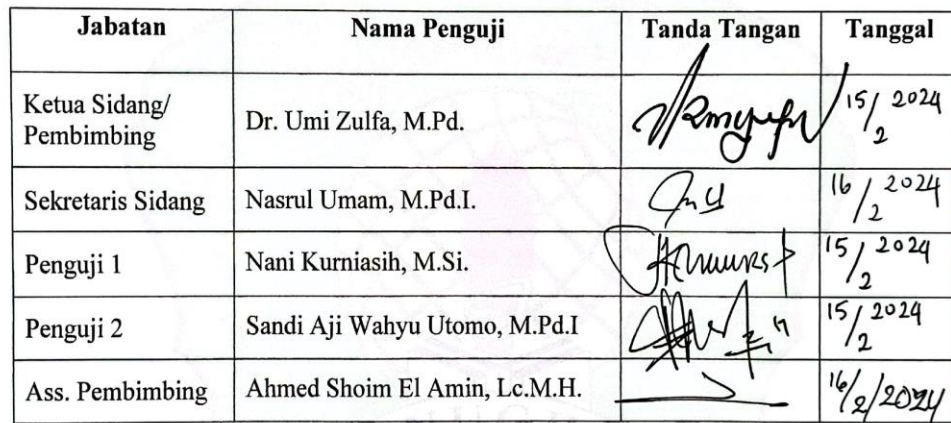 Jabatan Nama Penguji Tanda Tangan Tanggal
Ketua Sidang/
Pembimbing Dr. Umi Zulfa, M.Pd. 15/2 2024
Sekretaris Sidang Nasrul Umam, M.Pd.I. 16/2 2024
Penguji 1 Nani Kurniasih, M.Si. 15/2 2024
Penguji 2 Sandi Aji Wahyu Utomo, M.Pd.I 15/2 2024
Ass. Pembimbing Ahmed Shoim El Amin, Lc.M.H. 16/2/2024